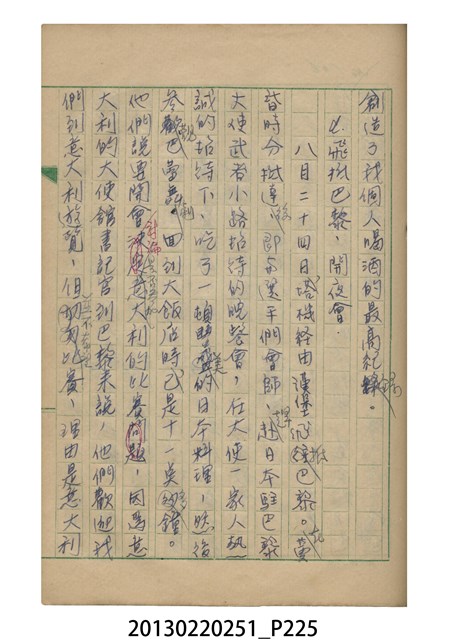 創造了我個人喝酒的最高紀錄。
飛抵巴黎，開夜會。
八月二十四日搭機經由漢堡飛抵巴黎。黃
昏時分抵達後，即與選手們會師，趕赴日本駐巴黎
大使武者小路招待的晚餐會，在大使一家人熱
誠的招待下，吃了一頓美的日本料理，然後
參觀巴黎舞劇。回到大飯店時已是十一點多鐘。
他們說要開會討論是否去意大利的比賽問題，因為意
大利的大使館書記官到巴黎來說，他們歡迎我
們到意大利遊覽，但比賽，理由是意大利
20130220251_P225